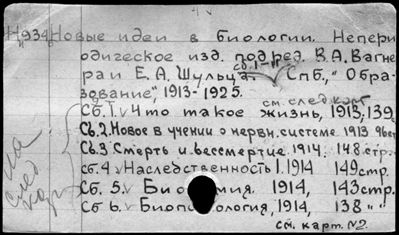 H934 Новые идеи в биологии. Непери
одическое изд. под ред. В.А. Вагне
ра и Е.А. Шульца сб. I-VI Спб., "Обра-
зование", 1913-1925.
см. след карт
Сб. 1. Что такое жизнь, 1913, 139
Сб. 2. Новое в учении о нервн. системе 1913 96 ст
Сб. 3 Смерть и бессмертие 1914. 148 стр.
сб. 4 Наследственность I. 1914 149 стр.
Сб. 5. 1914, 143 стр.
Сб 6. 1914, 138 " "
см. карт. №2.
на след кар